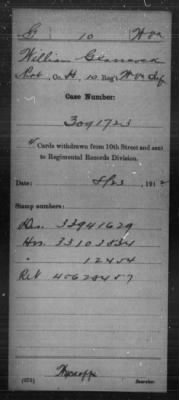 G 10 W Va
William Glasscock
Co. H, 10 Reg't W Va Inf
Case Number:
3091723
Cards withdrawn from 10th Street and sent
to Regimental Records Division.
Date: 8/23, 191
Stamp numbers:
33941629
33103834
" 12454
Ret 40620457
(573) Searcher.